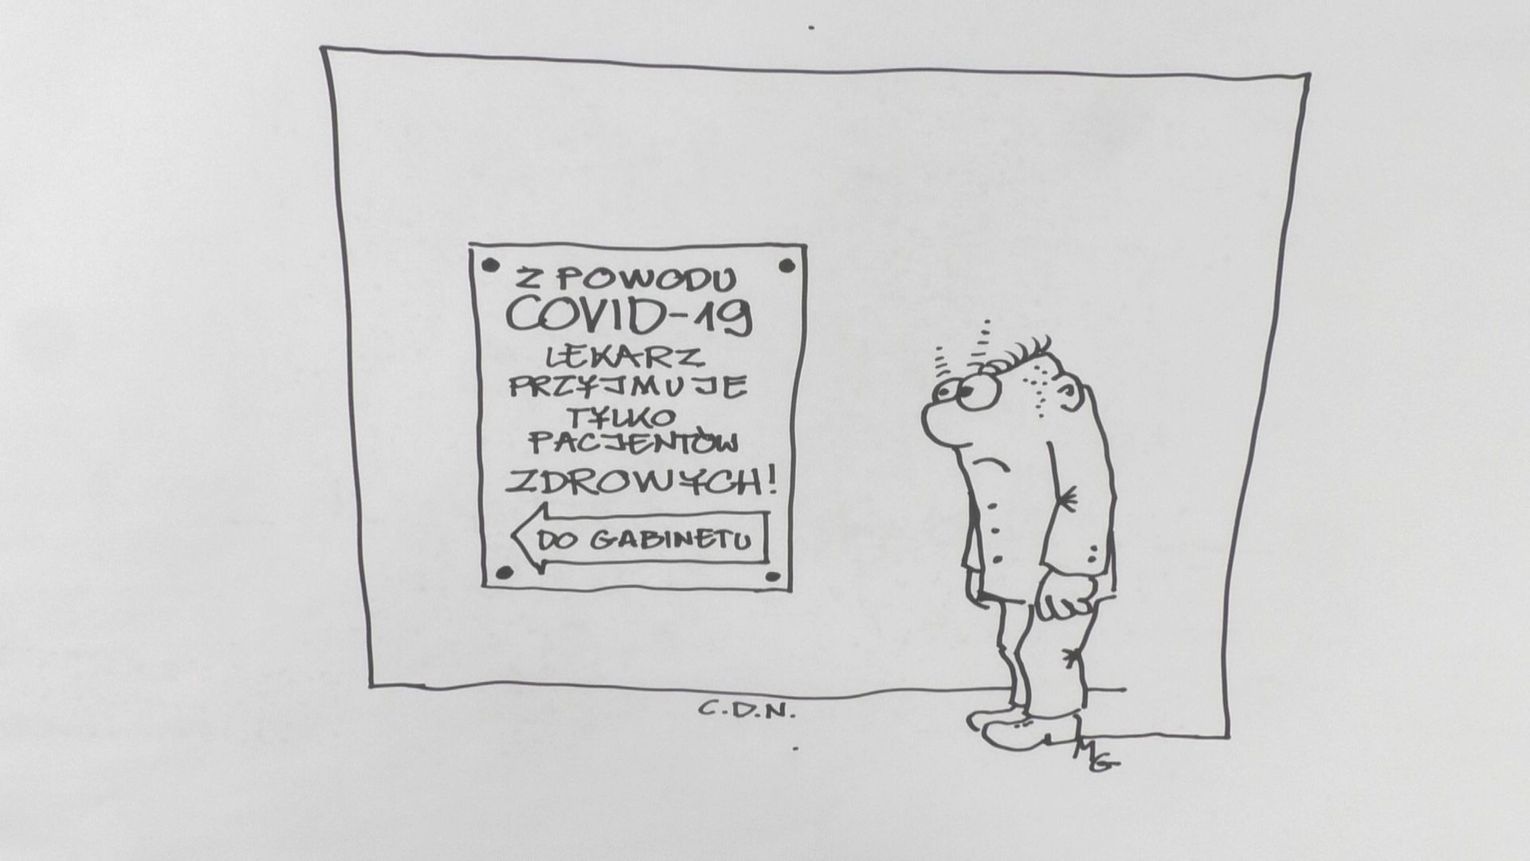 Z POWODU
COVID-19
LEKARZ
PRZYJMUJE
TYLKO
PACJENTÓW
ZDROWYCH!
DO GABINETU
C.D.N.
MG